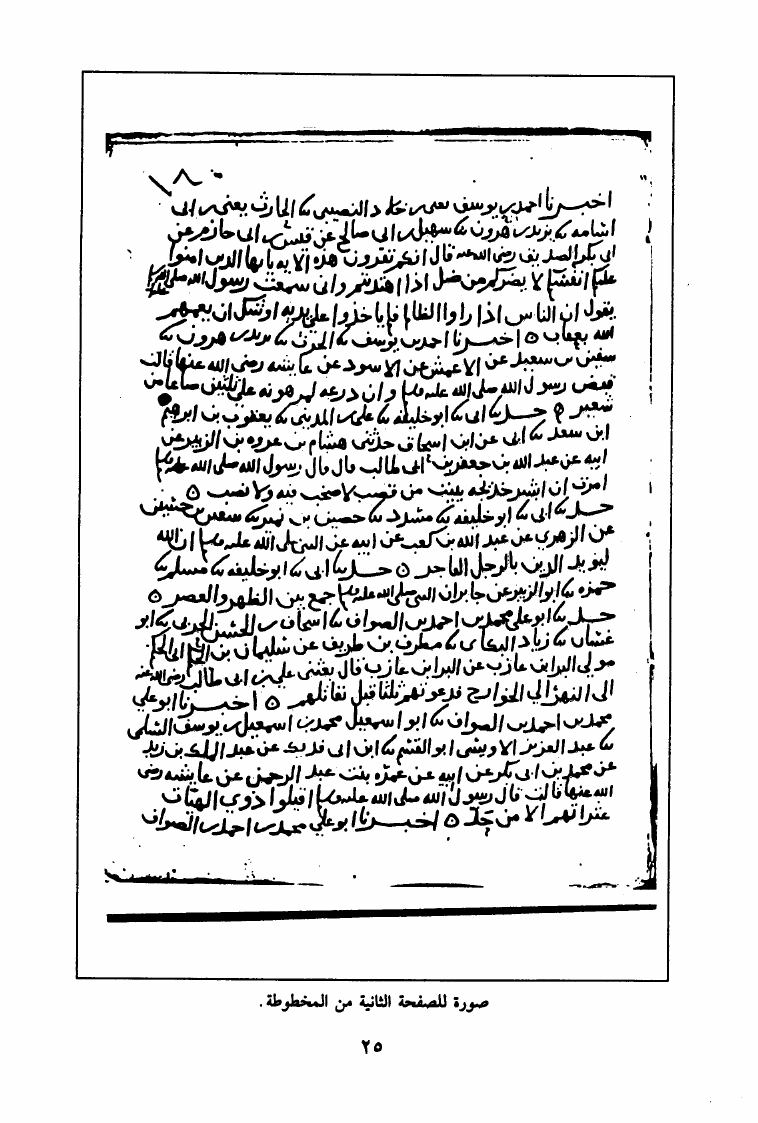 ١٨٠
اخبرنا احمد بن يوسف يعني بن خلاد النصيبي نا الحارث يعني بن ابي
اسامه نا يزيد بن هرون نا سهيل بن ابي صالح عن قيس بن ابي حازم عن
ابي بكر الصديق رضي الله عنه قال انكم تقرون هذه الايه يايها الذين امنوا
عليكم انفسكم لا يضركم من ضل اذا اهتديتم واني سمعت رسول الله صلى الله عليه
يقول ان الناس اذا راوا الظالم فلم ياخذوا على يديه اوشك ان يعمهم
الله بعقاب ○ اخبرنا احمد بن يوسف نا الحرث نا يزيد بن هرون نا
سفين بن سعيد عن الاعمش عن الاسود عن عايشه رضي الله عنها قالت
قبض رسول الله صلى الله عليه وسلم وان درعه لمرهونه على ثلثين صاعا من
شعير ○ حدثنا ابي نا ابو خليفه نا علي بن المديني نا يعقوب بن ابرهيم
ابن سعد نا ابي عن ابن اسحاق حدثني هشام بن عروه بن الزبير عن
ابيه عن عبد الله بن جعفر بن ابي طالب قال قال رسول الله صلى الله عليه وسلم
امرت ان ابشر خديجه ببيت من قصب لا صخب فيه ولا نصب ○
حدثنا ابي نا ابو خليفه نا مسدد نا حصين بن نمير نا سفين بن حسين
عن الزهري عن عبد الله بن كعب عن ابيه عن النبي صلى الله عليه وسلم ان الله
ليويد الدين بالرجل الفاجر ○ حدثنا ابي نا ابو خليفه نا مسلم نا
حمزه نا ابو الزبير عن جابر ان النبي صلى الله عليه وسلم جمع بين الظهر والعصر ○
حدثنا ابو علي محمد بن احمد بن الصواف نا اسحاق بن الحسن الحربي نا ابو
غسان نا زياد البكاي نا مطرف بن طريف عن سليمان بن الجهم ابي الجهم
مولى البرا بن عازب عن البرا بن عازب قال بعثني علي بن ابي طالب رضي الله عنه
الى النهر الى الخوارج فدعوتهم ثلثا قبل نقاتلهم ○ اخبرنا ابو علي
محمد بن احمد بن الصواف نا ابو اسمعيل محمد بن اسمعيل بن يوسف السلمي
نا عبد العزيز الاويسي ابو القسم نا ابن ابي فديك عن عبد الملك بن زيد
عن محمد بن ابي بكر عن ابيه عن عمره بنت عبد الرحمن عن عايشه رضي
الله عنها قالت قال رسول الله صلى الله عليه وسلم اقيلوا ذوي الهيات
عثراتهم الا من حد ○ اخبرنا ابو علي محمد بن احمد بن الصواف
صورة للصفحة الثانية من المخطوطة.
٢٥